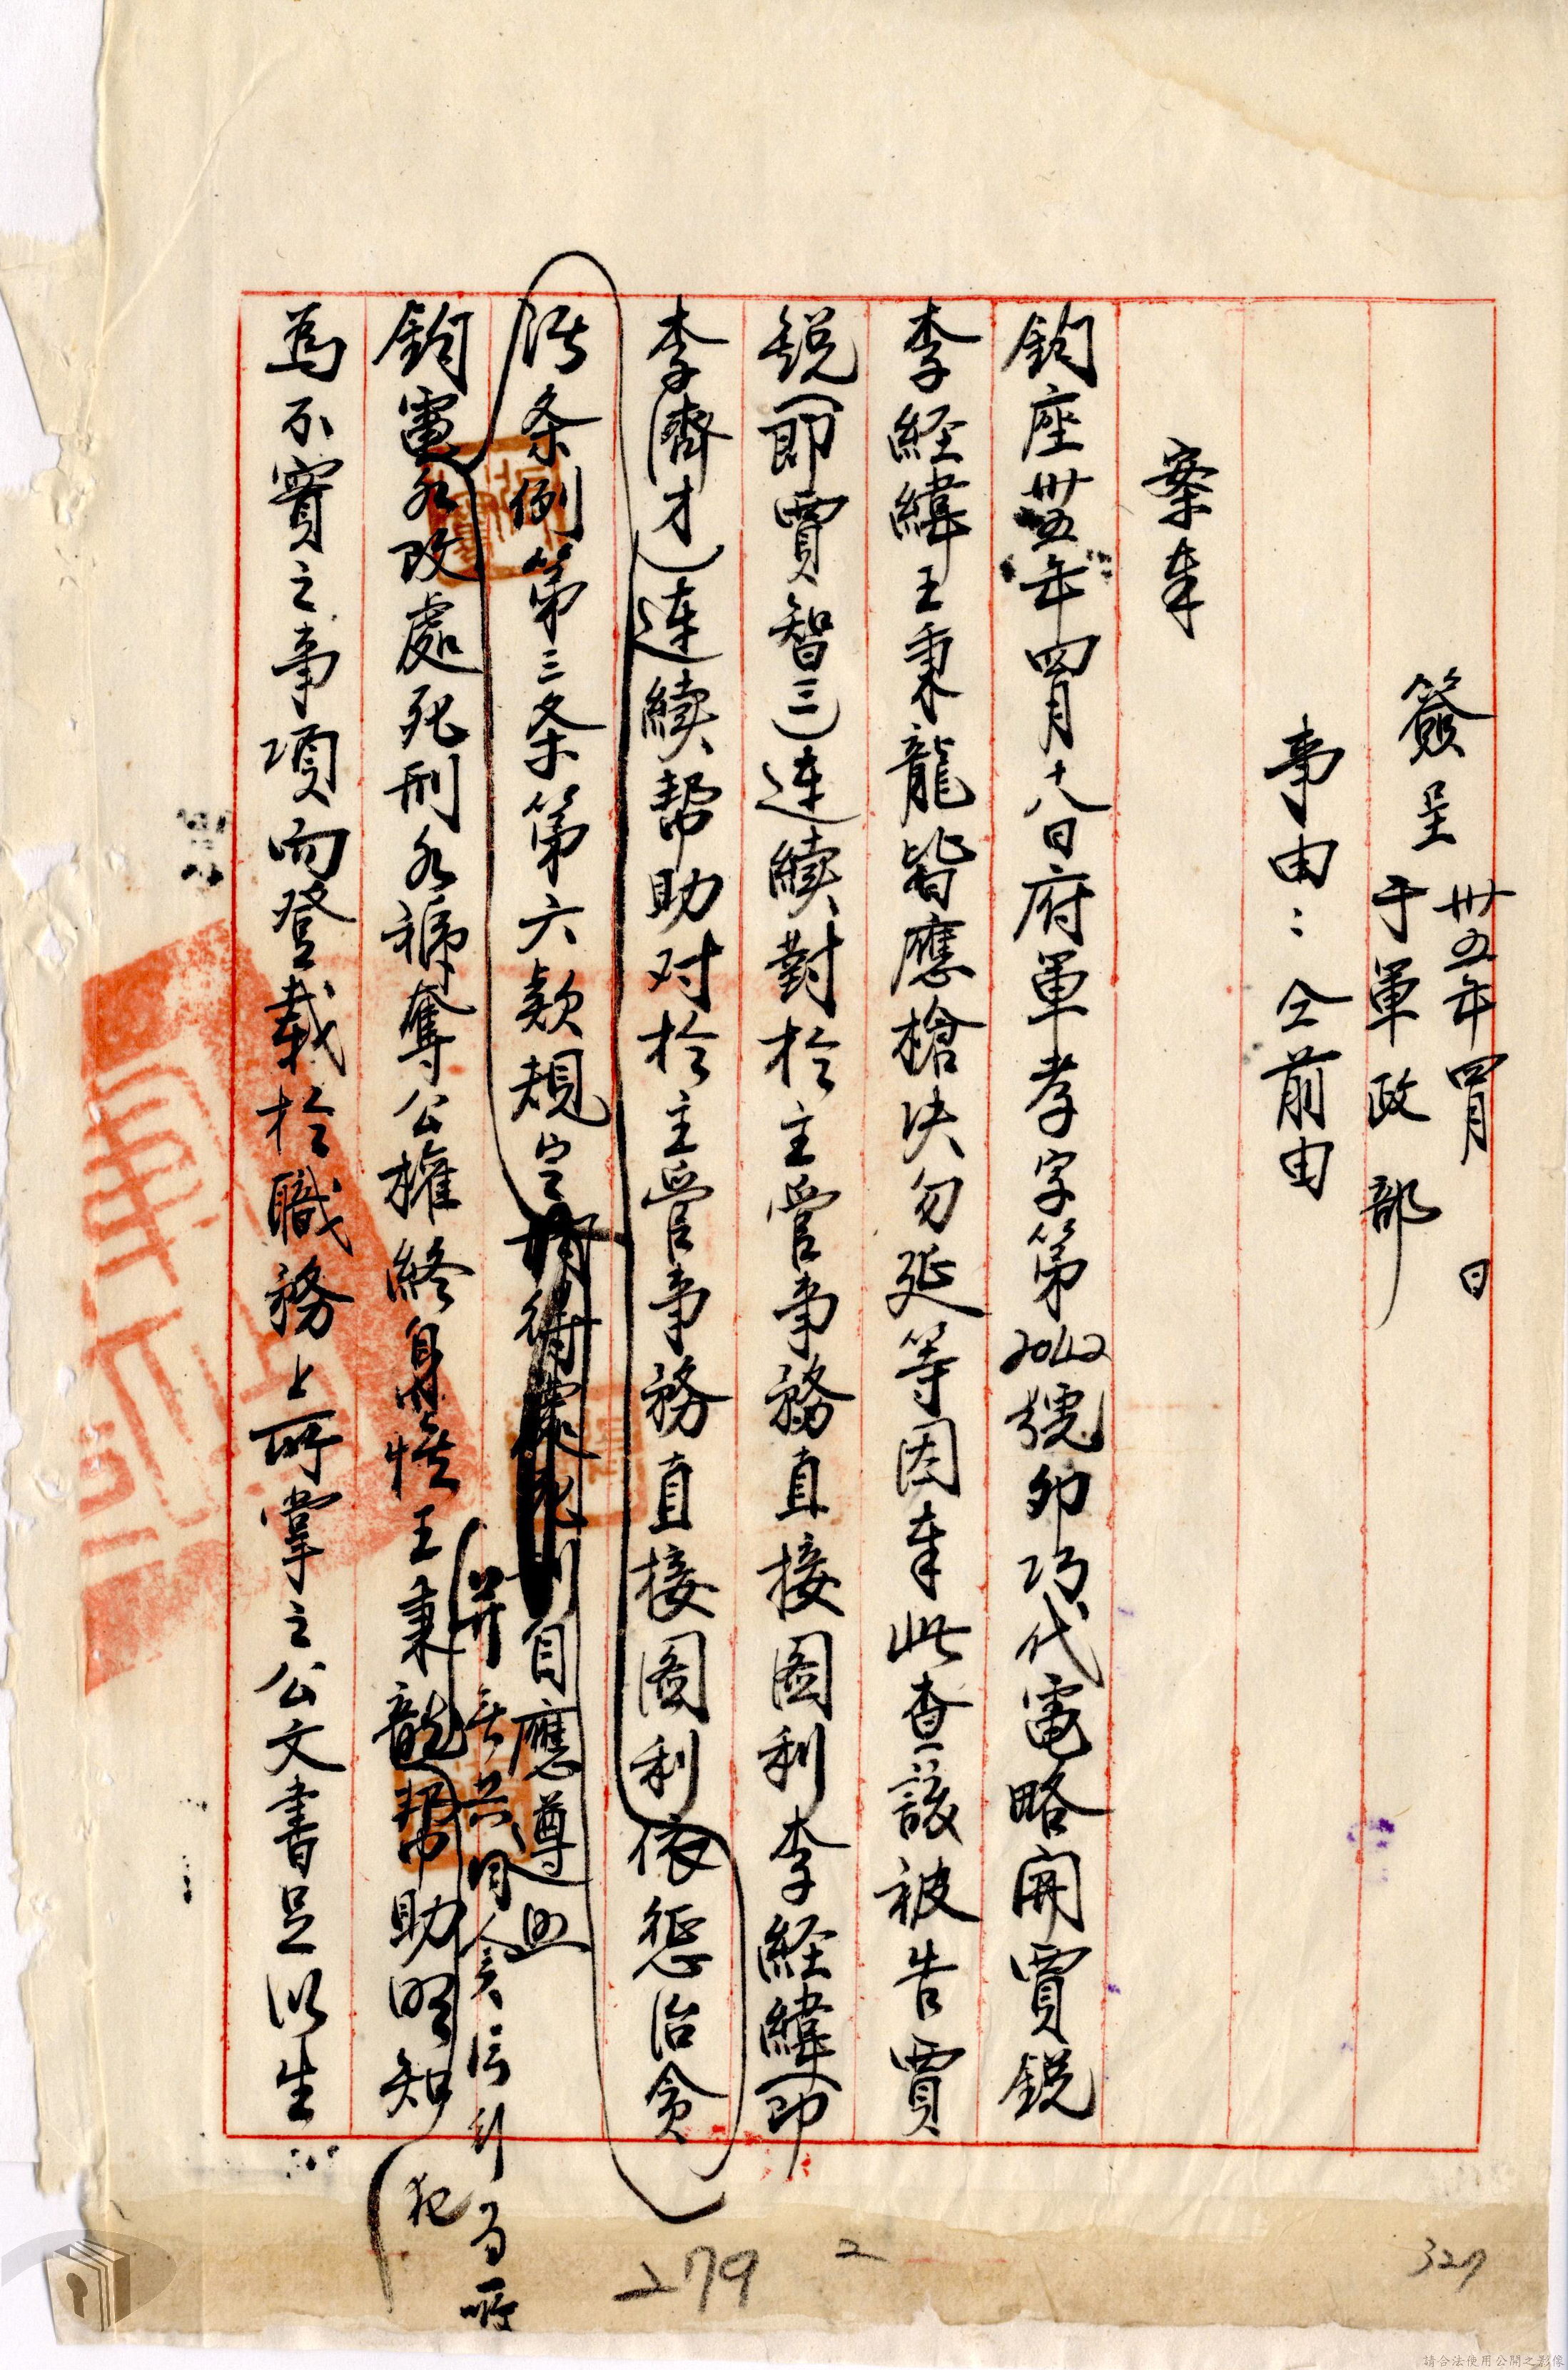 簽呈 卅五年四月 日
于軍政部
事由：仝前由
案奉
鈞座卅五年四月十八日府軍孝字第2042號卯巧代電略開賈銳
李経緯王秉龍皆應槍決勿延等因奉此查該被告賈
銳（即賈智三）連續對於主管事務直接圖利李経緯（即
李濟才）連續帮助对於主管事務直接圖利依惩治貪
污条例第三条第六款規定
自應遵照
鈞電各改處死刑各褫奪公權終身惟王秉龍帮助明知
并無共同
犯
為不實之事項而登載於職務上所掌之公文書足以生
279
2
327
請合法使用公開之影像